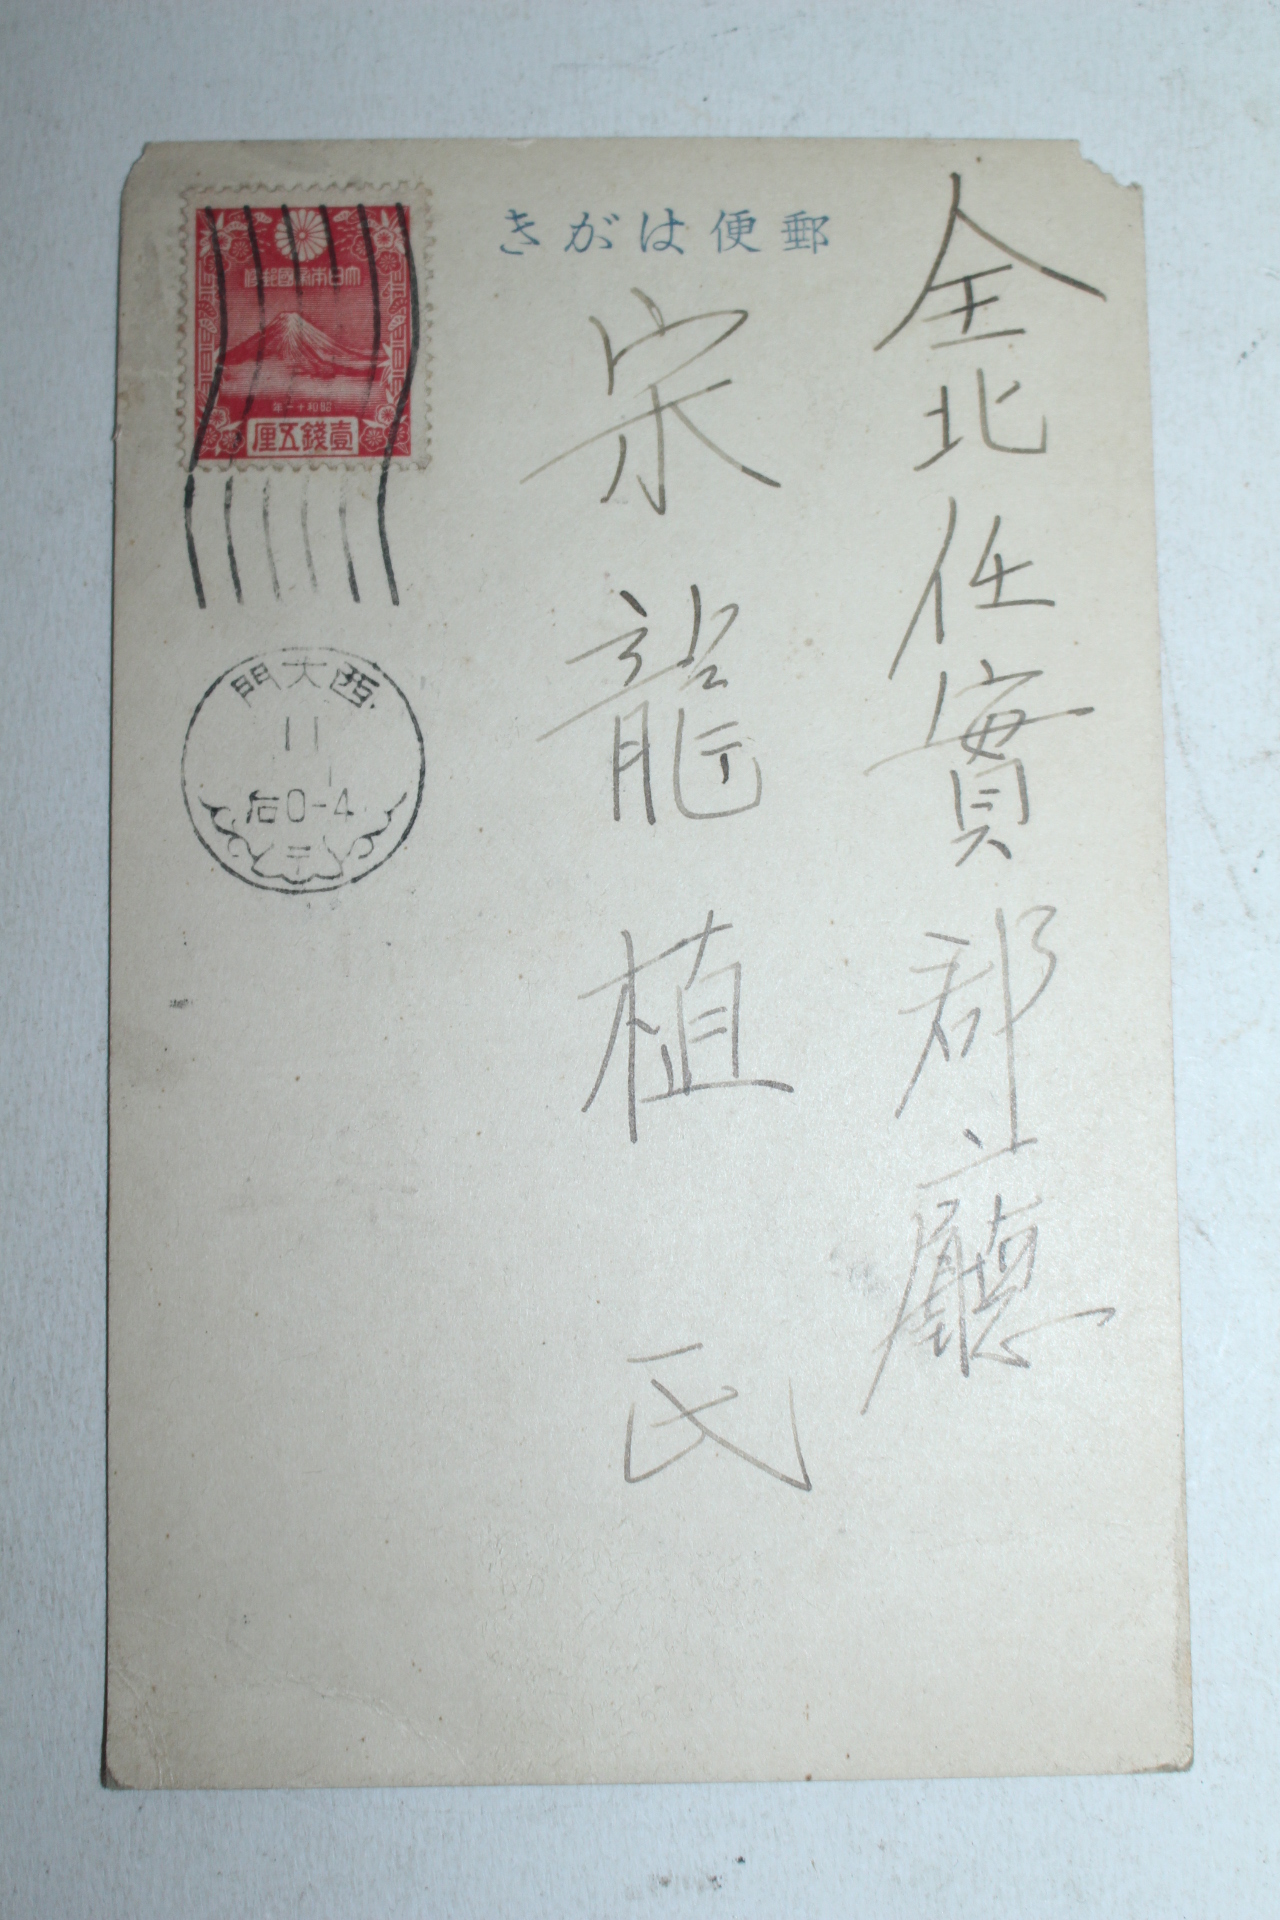 郵便はがき
大日本帝國郵便
昭和十一年
壹錢五厘
西大門
11
1
后0-4
全北任實郡廳
宋龍植 氏